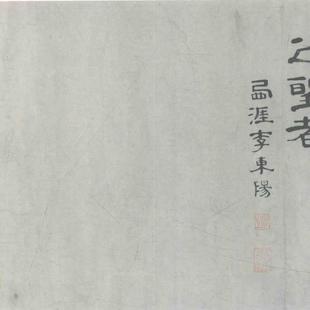 之聖者
西涯李東陽